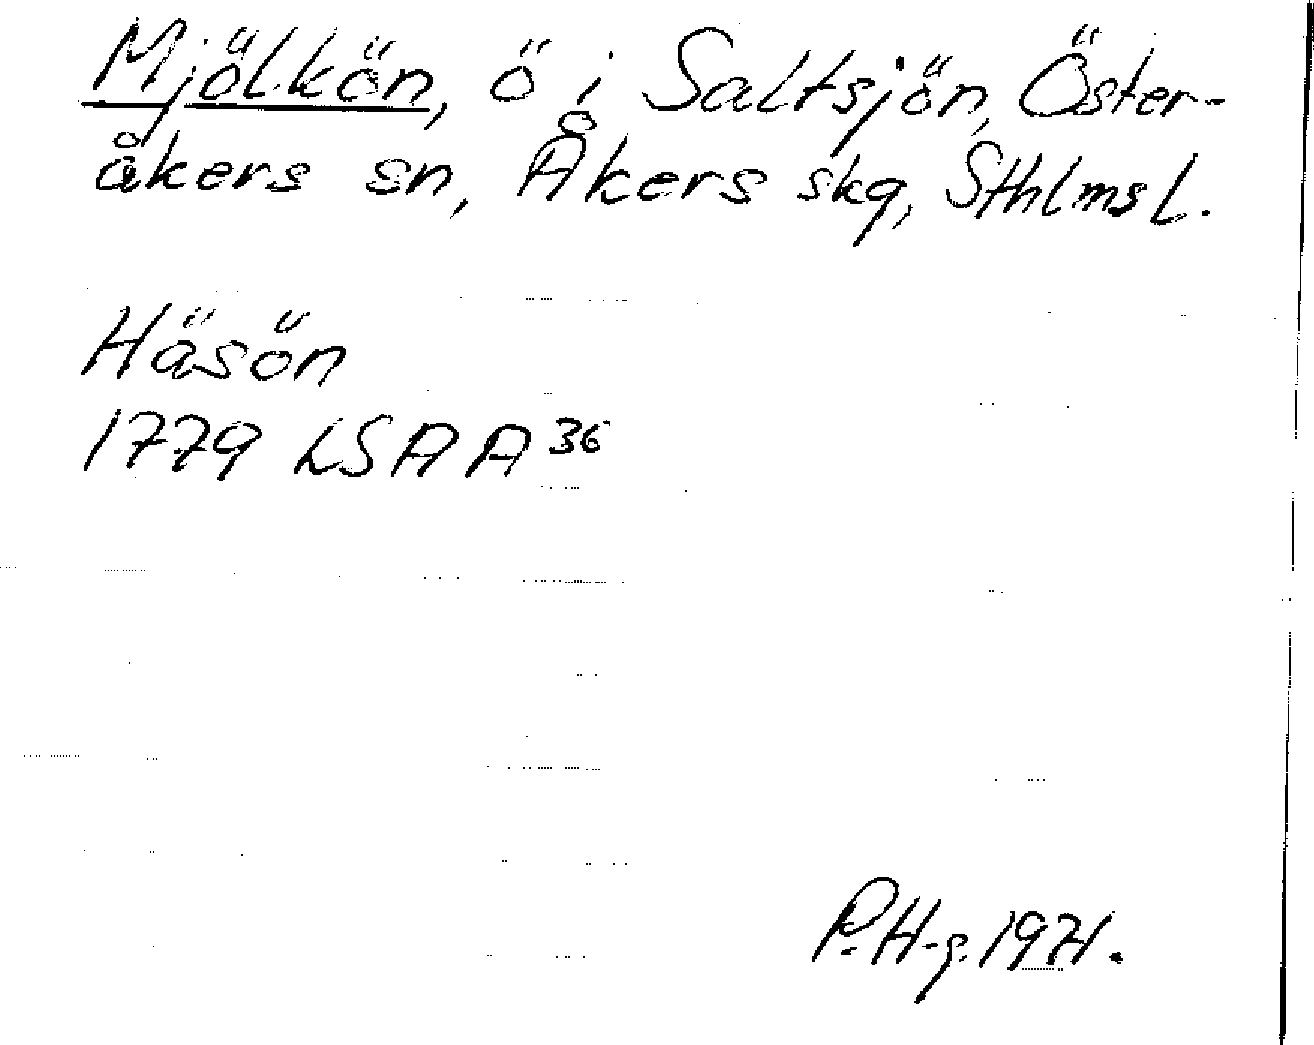 Mjölkön, ö i Saltsjön, Öster-
åkers sn, Åkers skg, Sthlms l.
Häsön
1779 LSA A 36
P. H-g. 1971.